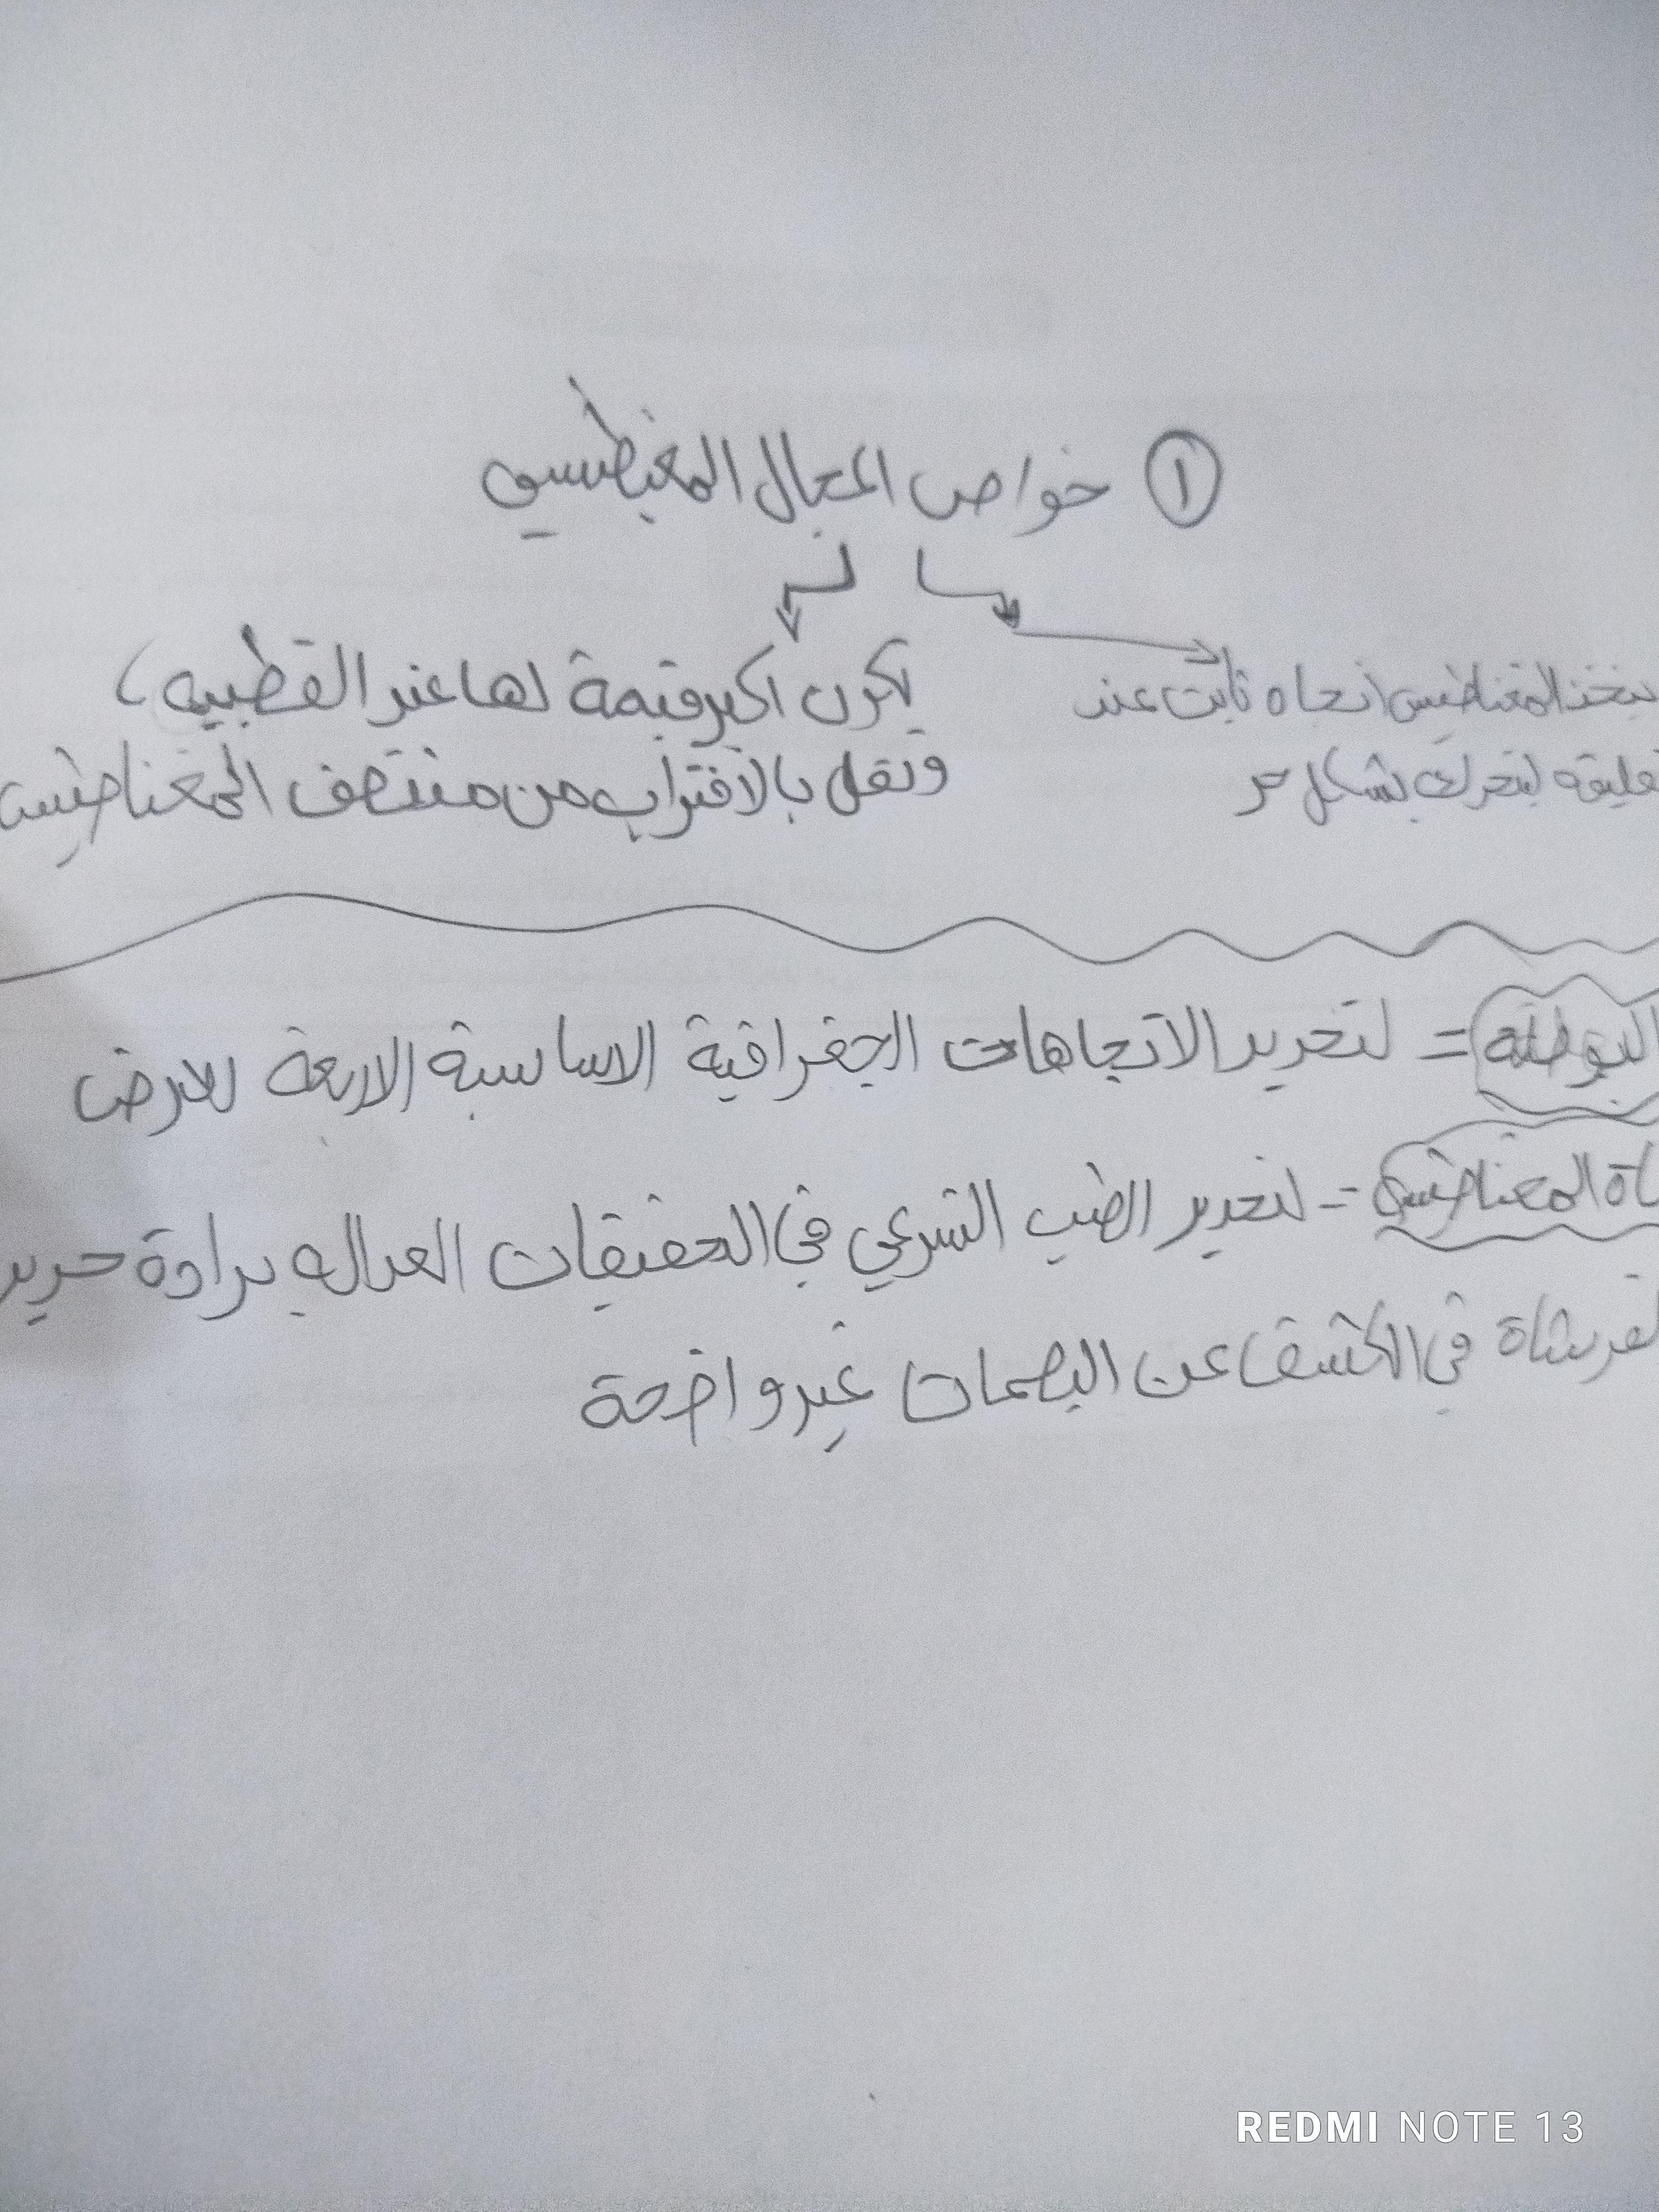 ① خواص المجال المغنطيسي
يتخذ المغناطيس اتجاه ثابت عند
تعليقه ليتحرك بشكل حر
تكون اكبر قيمة لها عند القطبين (
وتقل بالاقتراب من منتصف المغناطيس
البوصلة = لتحديد الاتجاهات الجغرافية الاساسية الاربعة للارض
المغناطيسي = لتحديد الطب الشرعي في التحقيقات العدالة برادة حديد
في الكشف عن البصمات غير واضحة
REDMI NOTE 13